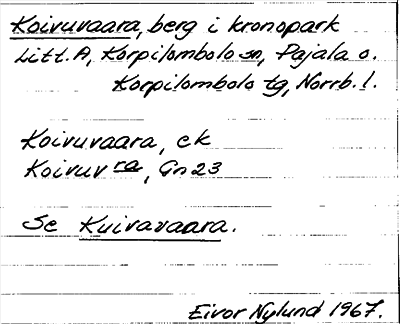 Koivuvaara, berg i kronopark
Litt. A, Korpilombolo sn, Pajala o.
Korpilombolo tg, Norrb. l.
Koivuvaara, ek
Koivuvra, Gn 23
Se Kuivavaara.
Eivor Nylund 1967.